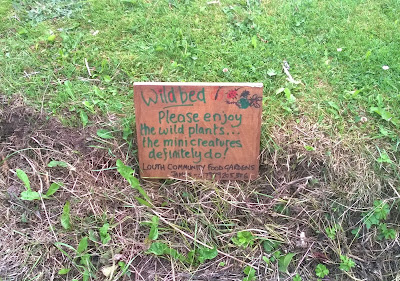 Wildbed
Please enjoy
the wild plants...
the minicreatures
definitely do!
LOUTH COMMUNITY FOOD GARDENS